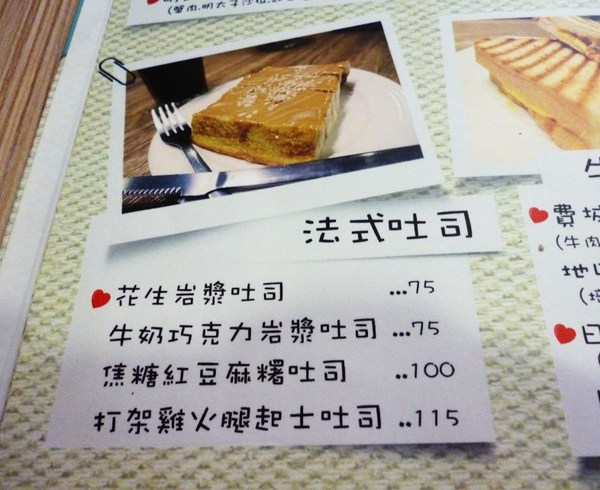 (蟹肉,明太子沙拉
法式吐司
花生岩漿吐司 ...75
牛奶巧克力岩漿吐司 ...75
焦糖紅豆麻糬吐司 ..100
打架雞火腿起士吐司 ..115
牛
費城
(牛肉
地
日